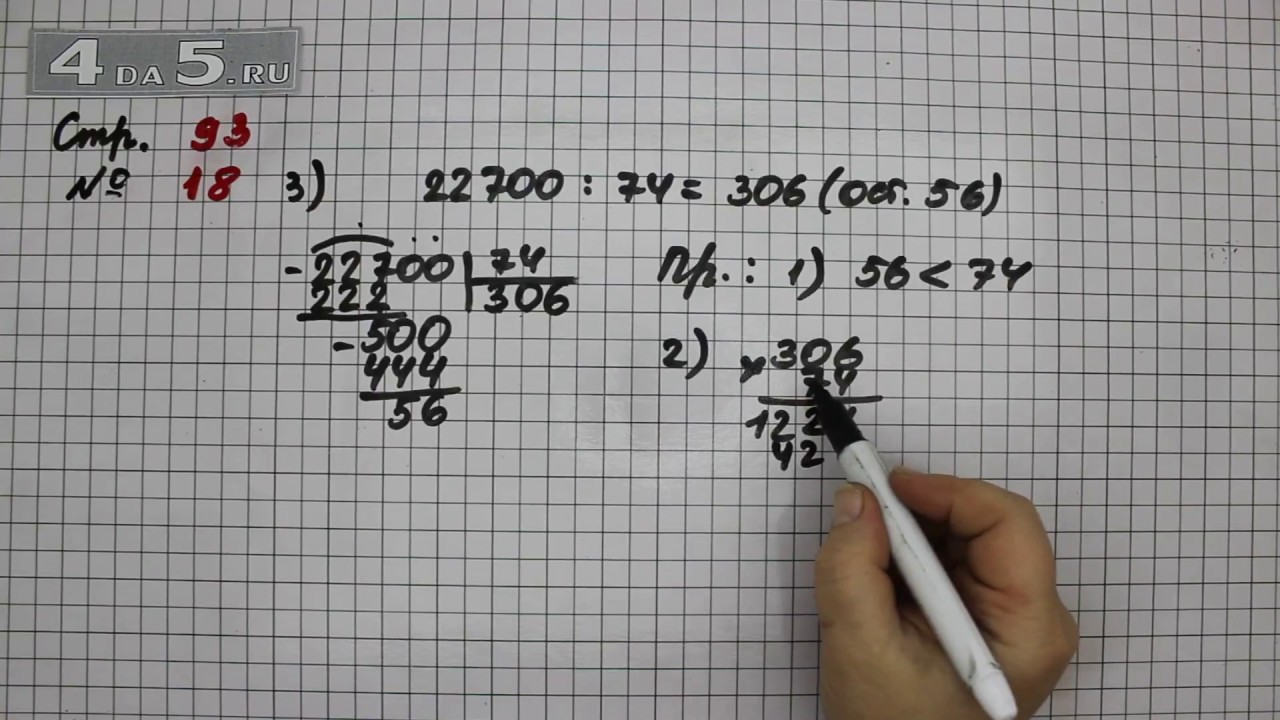 4DA5.RU
Стр. 93
№ 18 3) 22700 : 74 = 306 (ост. 56)
- 22700 74
222 306
- 500
444
56
Пр.: 1) 56 < 74
2) × 306
74
122
42